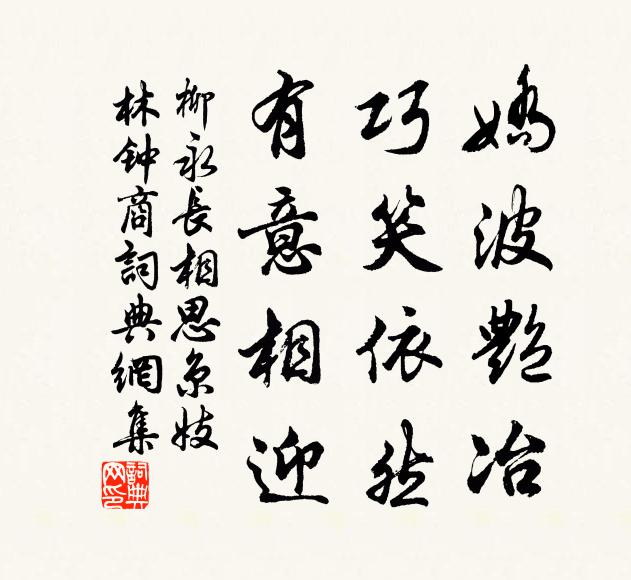 嬌波艷冶
巧笑依然
有意相迎
柳永長相思京妓
林钟商詞典網集
詞典网印